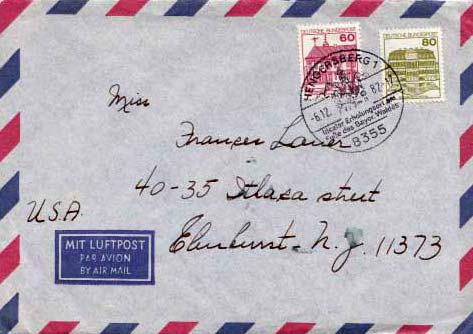 DEUTSCHE BUNDESPOST
60
DEUTSCHE BUNDESPOST
80
HENGERSBERG 1
-6.12. 82
idealer Erholungsort am
Fuße des Bayer. Waldes
8355
Miss
40-35 street
U.S.A. N.Y. 11373
MIT LUFTPOST
PAR AVION
BY AIR MAIL